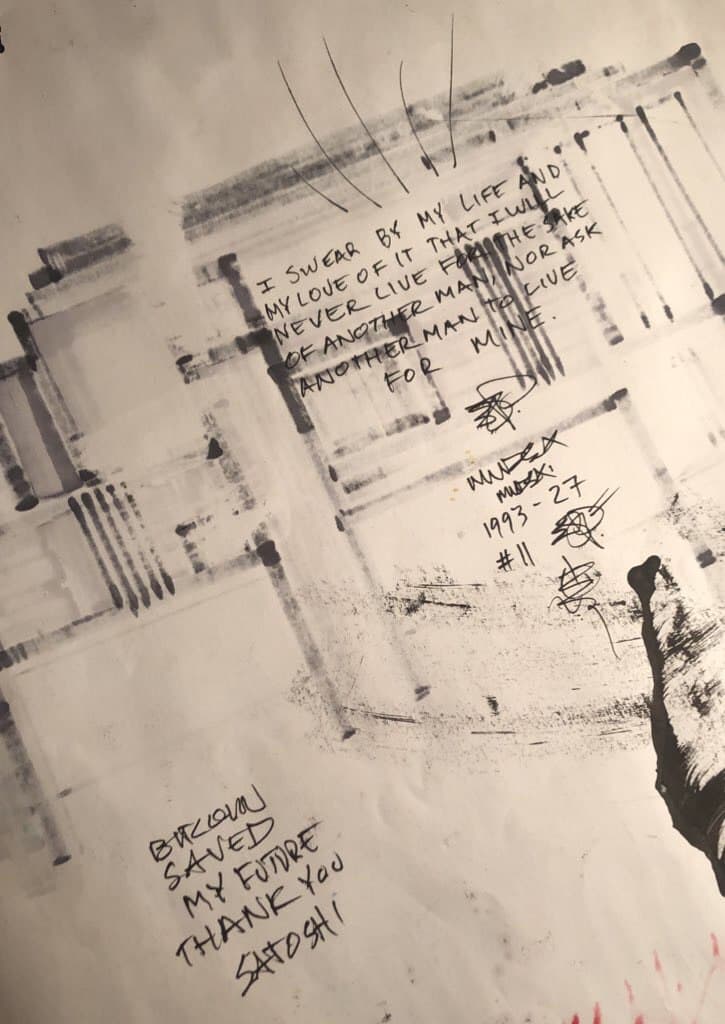 I SWEAR BY MY LIFE AND
MY LOVE OF IT THAT I WILL
NEVER LIVE FOR THE SAKE
OF ANOTHER MAN, NOR ASK
ANOTHER MAN TO LIVE
FOR MINE.
1993-27
#11
SAVED
MY FUTURE
THANK YOU
SATOSHI